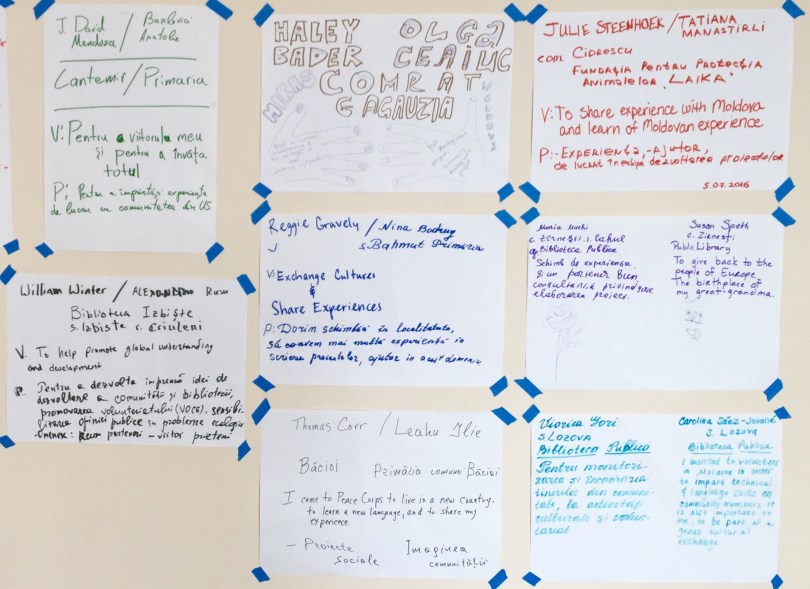 J. David Mendoza / Anatolie
Cantemir / Primaria
V: Pentru viitorul meu
și pentru a învăța
totul
P: Pentru a împărtăși experiența
de lucru cu comunitatea din US
HALEY OLGA
BADER CEAIUC
COMRAT
GAGAUZIA
MOLDOVA
JULIE STEENHOEK / TATIANA
MANASTIRLI
com Ciorescu
FUNDAȚIA PENTRU PROTECȚIA
ANIMALELOR "LAIKA"
V: To share experience with Moldova
and learn of Moldovan experience
P: - EXPERIENȚA, - AJUTOR,
DE LUCRAT ÎN ECHIPA DEZVOLTAREA PROIECTELOR
5.07.2016
William Winter / ALEXANDRU Rusu
Biblioteca Izbiște
s. Izbiste r. Criuleni
V. To help promote global understanding
and development
P. Pentru a dezvolta împreună idei de
dezvoltare a comunității și bibliotecii,
promovarea voluntariatului (VOCE), sensibi-
lizarea opiniei publice cu probleme ecologice
parteneri - viitor prieteni
Reggie Gravely / Nina
s. Bahmut Primăria
V: Exchange Cultures
&
Share Experiences
P: Dorim schimbări în localitate,
să avem mai multă experiență în
scrierea proiectelor, ajutor în acest domeniu
Maria
c. Zîrnești r. Cahul
Biblioteca Publica
Schimb de experiența
și un partener bun
consultanță privind scrie
elaborarea proiect.
Susan Speth
c. Zirnesti
Public Library
To give back to the
people of Europe
The birthplace of
my great-grandma.
Thomas Corr / Leahu Ilie
Băcioi Primăria comunei Băcioi
I came to Peace Corps to live in a new country,
to learn a new language, and to share my
experience.
- Proiecte Imaginea
sociale comunității
Viorica Țori
S. LOZOVA
Biblioteca Publica
Pentru monitori-
zarea și încurajarea
tinerilor din comuni-
tate, la activități
culturale și volun-
tariat
Carolina Sánz-
S. Lozova
Biblioteca Publica
I wanted to volunteer
in Moldova in order
to impart technical
& language skills on
community members. It
is also important to
me to be part of a
great cultural
exchange.